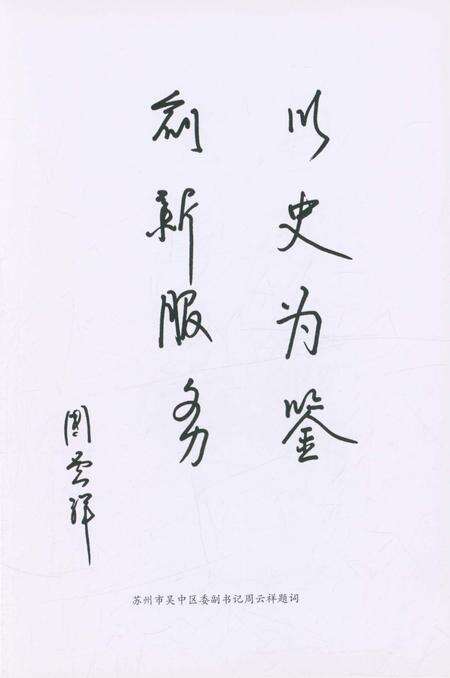 以史为鉴
创新服务
周云祥
苏州市吴中区委副书记周云祥题词